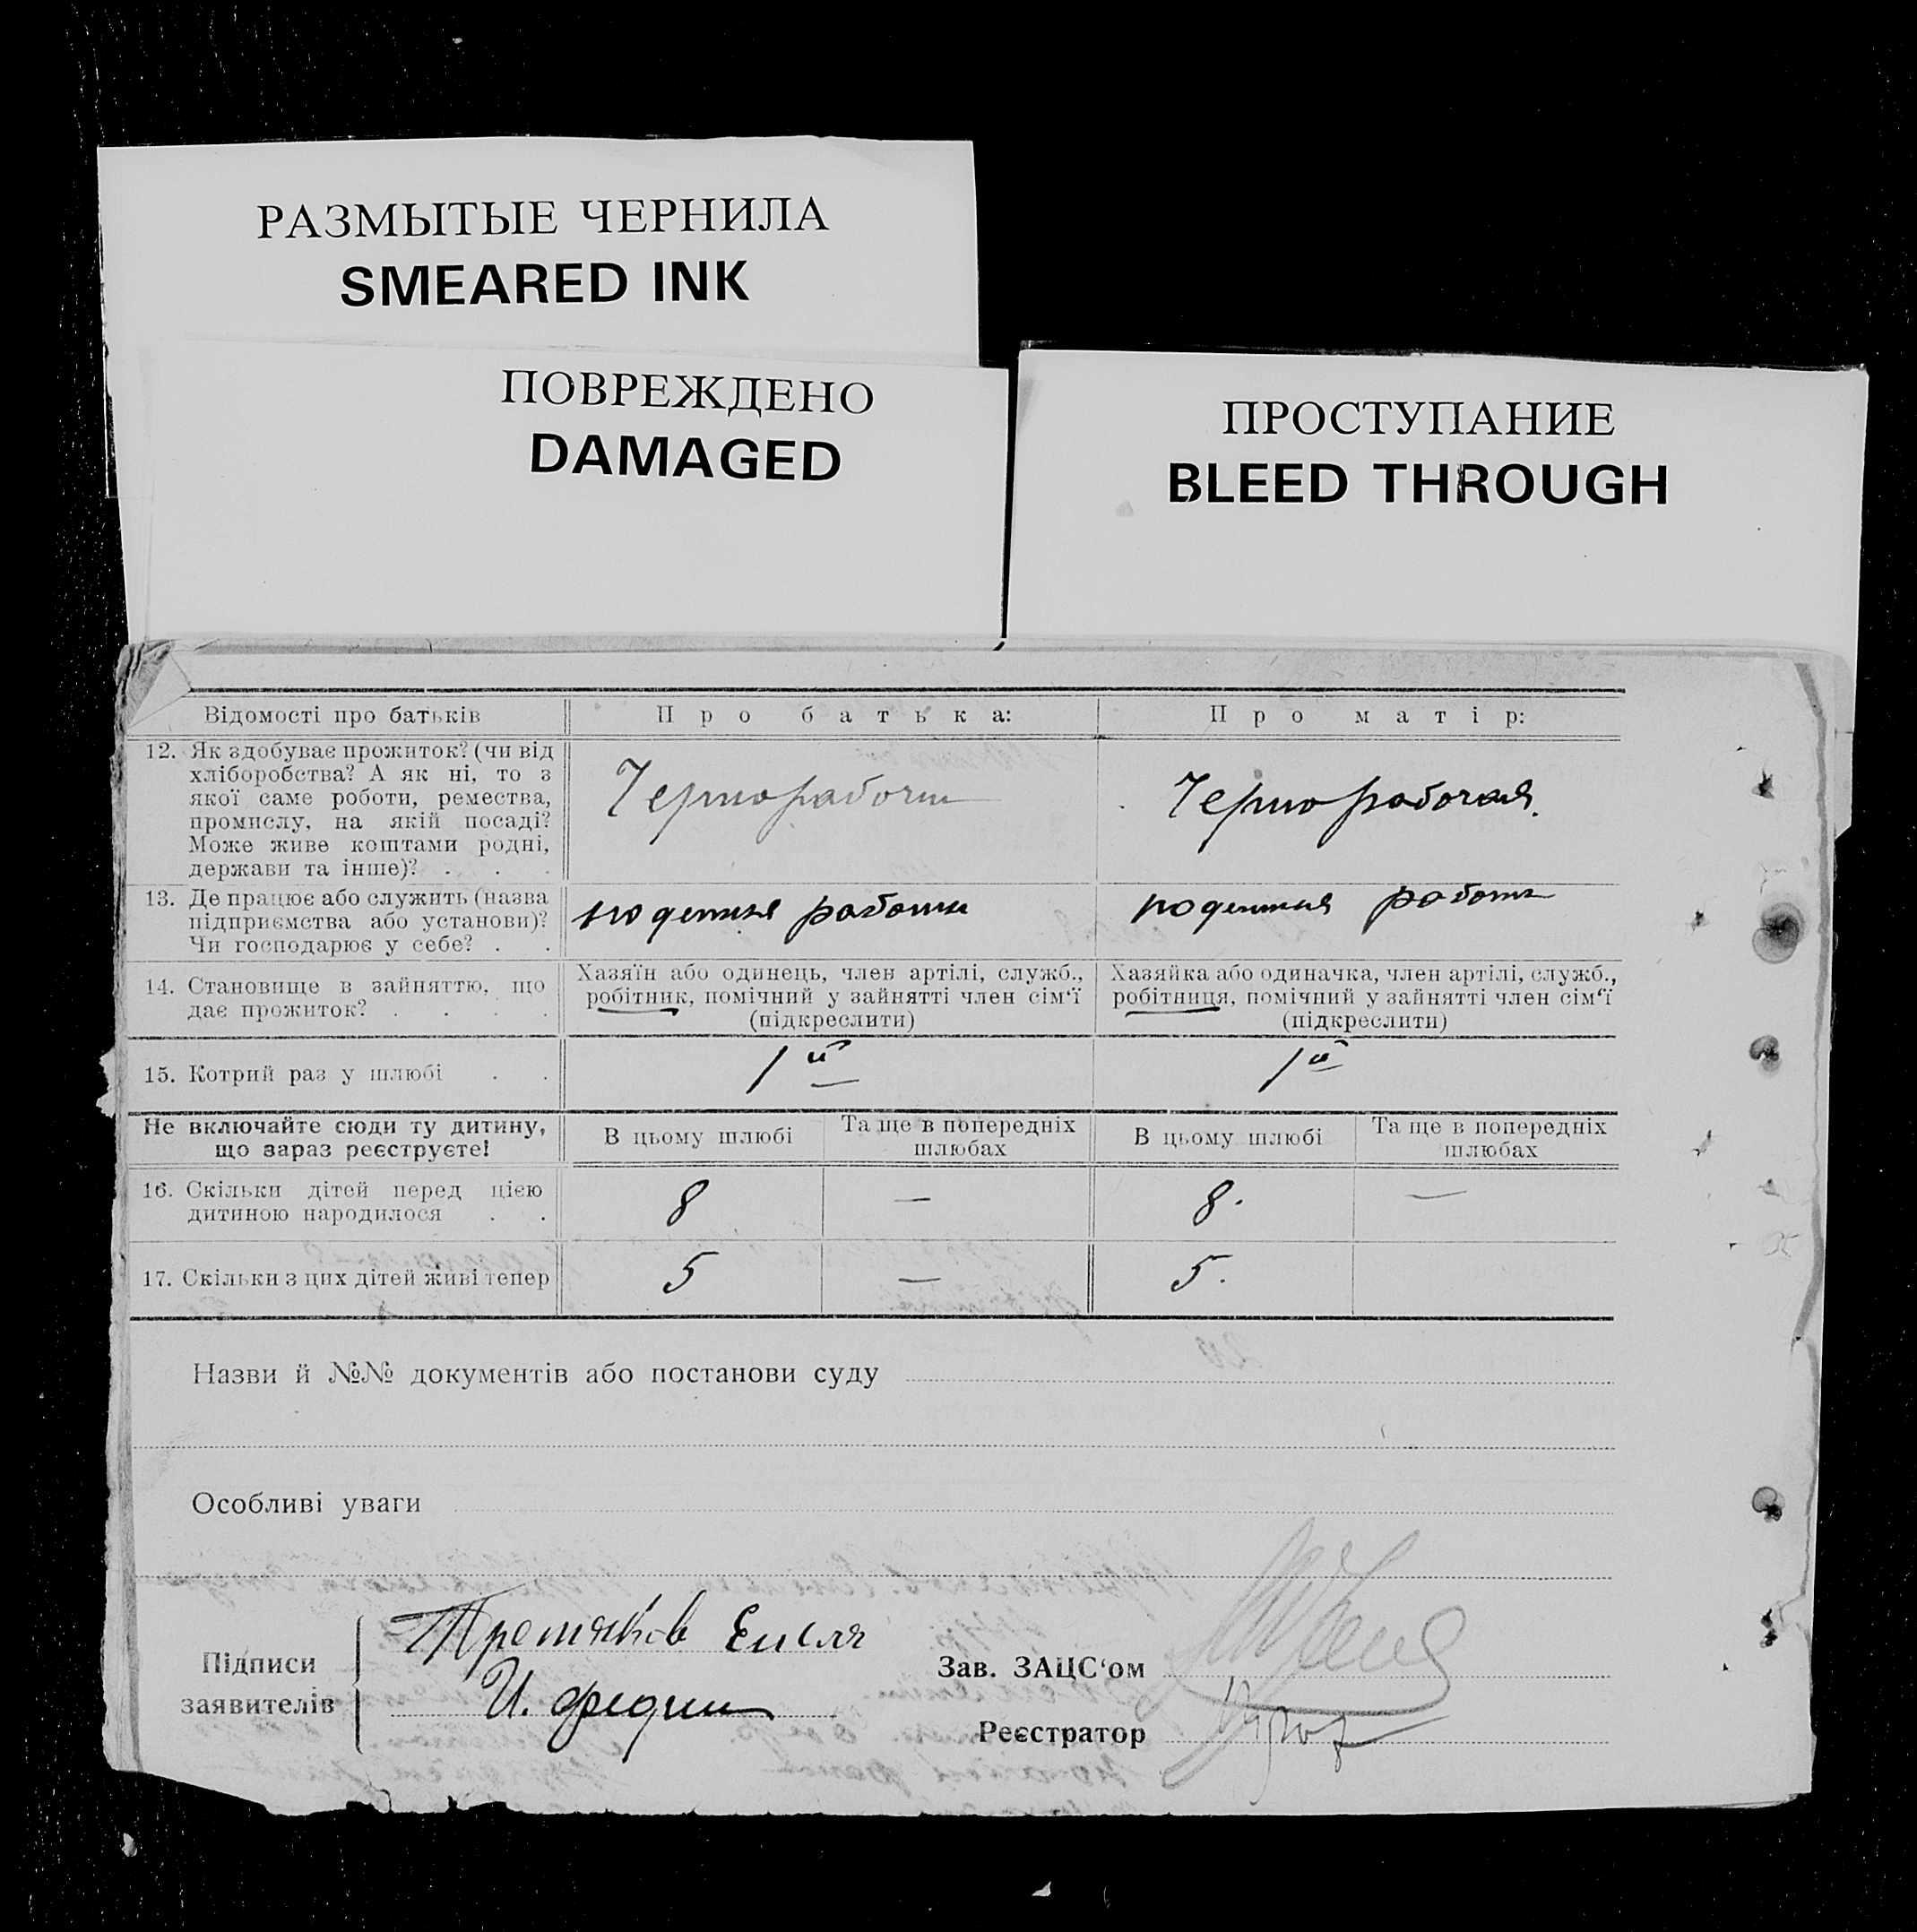 РАЗМЫТЫЕ ЧЕРНИЛА
SMEARED INK
ПОВРЕЖДЕНО
DAMAGED
ПРОСТУПАНИЕ
BLEED THROUGH
Відомості про батьків
Про батька:
Про матір:
12. Як здобуває прожиток? (чи від
хліборобства? А як ні, то з
якої саме роботи, ремества,
промислу, на якій посаді?
Може живе коштами родні,
держави та інше)? . . .
Чернорабочий
Чернорабочая.
13. Де працює або служить (назва
підприємства або установи)?
Чи господарює у себе? . .
поденная работа
поденная работа
14. Становище в зайняттю, що
дає прожиток? . . . .
Хазяїн або одинець, член артілі, служб.,
робітник, помічний у зайнятті член сім‘ї
(підкреслити)
Хазяйка або одиначка, член артілі, служб.,
робітниця, помічний у зайнятті член сім‘ї
(підкреслити)
15. Котрий раз у шлюбі . .
1й
1й
Не включайте сюди ту дитину,
що зараз реєструєте!
В цьому шлюбі
Та ще в попередніх
шлюбах
В цьому шлюбі
Та ще в попередніх
шлюбах
16. Скільки дітей перед цією
дитиною народилося . .
8 — 8. —
17. Скільки з цих дітей живі тепер
5 — 5.
Назви й №№ документів або постанови суду
Особливі уваги
Підписи
заявителів
Третяков
И.
Зав. ЗАЦС‘ом
Реєстратор